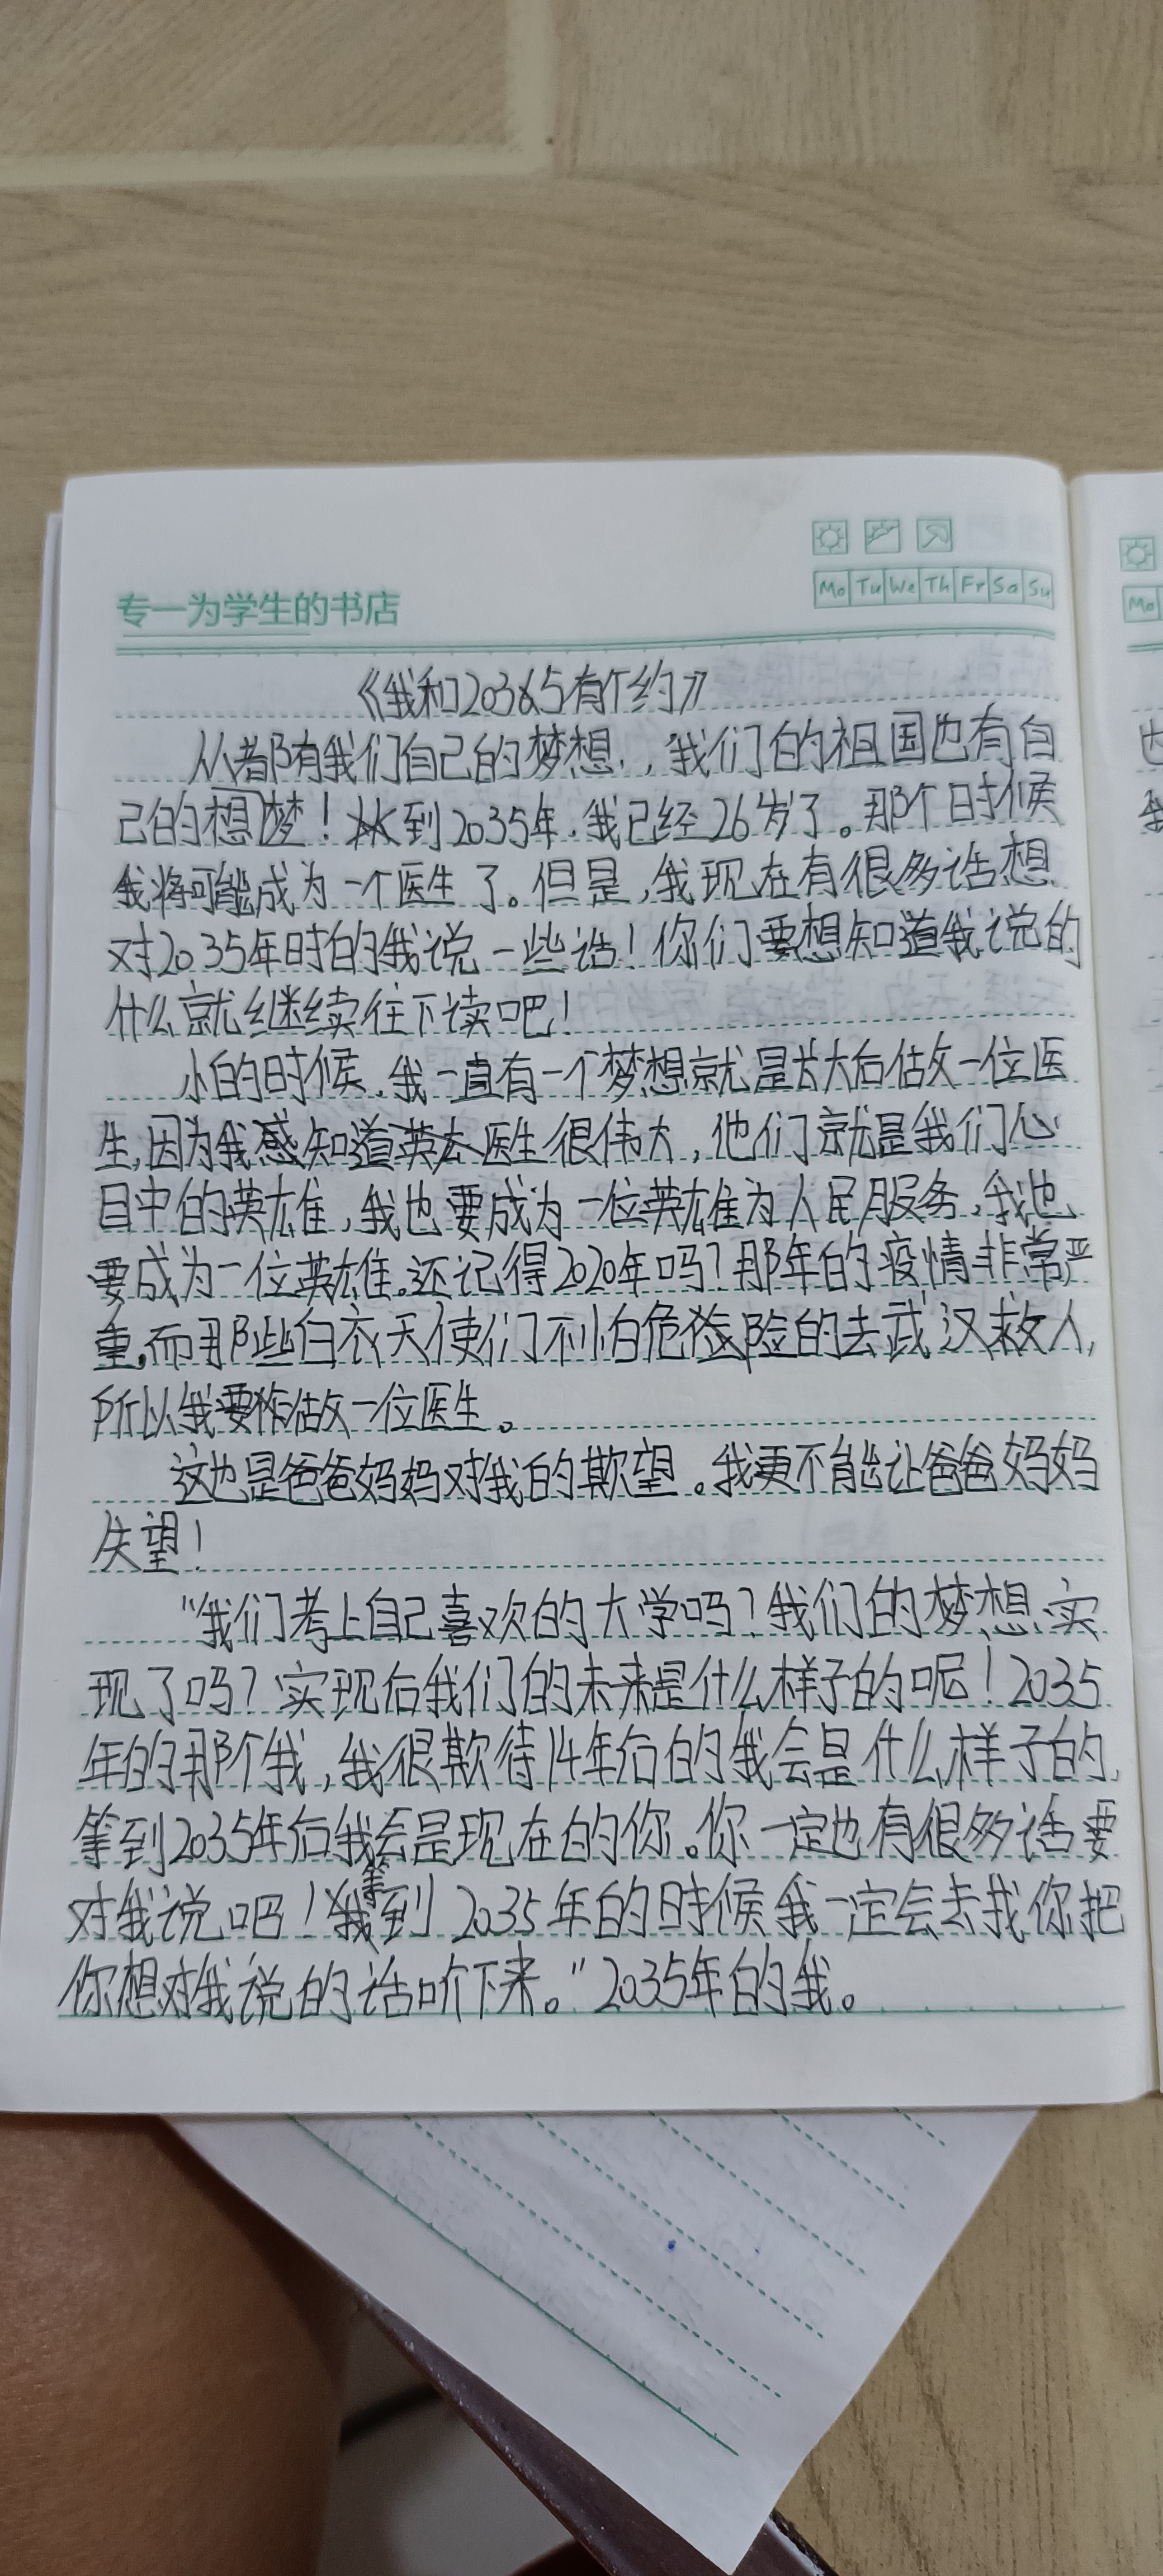 Mo Tu We Th Fr Sa Su
Mo
专一为学生的书店
《我和2035有个约》
从都有我们自己的梦想，我们的祖国也有自
己的想梦！到2035年，我已经26岁了。那个时候
我将可能成为一个医生了。但是，我现在有很多话想
对2035年时的我说一些话！你们要想知道我说的
什么就继续往下读吧！
小的时候，我一直有一个梦想就是长大后做一位医
生，因为我感知道医生很伟大，他们就是我们心
目中的英雄，我也要成为一位英雄为人民服务，我也
要成为一位英雄。还记得2020年吗？那年的疫情非常严
重，而那些白衣天使们不怕危险的去武汉救人，
所以我要做一位医生。
这也是爸爸妈妈对我的欺望。我更不能让爸爸妈妈
失望！
“我们考上自己喜欢的大学吗？我们的梦想实
现了吗？实现后我们的未来是什么样子的呢！2035
年的那个我，我很欺待14年后的我会是什么样子的，
等到2035年后我会是现在的你。你一定也有很多话要
对我说吧！等到2035年的时候我一定会去找你把
你想对我说的话听下来。”2035年的我。